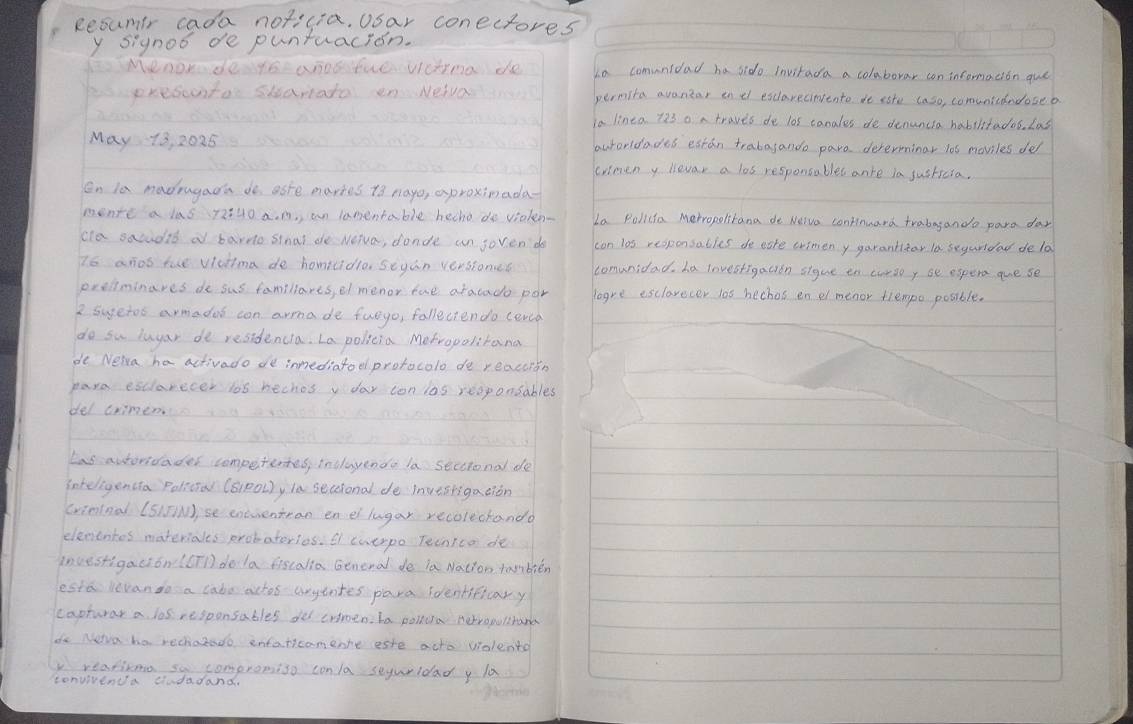 Resumir cada noticia. Usar conectores
y signos de puntuación.
Menor de 16 años fue victima de
presunto sicariato en Neiva
May 13, 2025
En la madrugada de este martes 13 mayo, aproximada-
mente a las 12:40 a.m., un lamentable hecho de violen-
cia sacudió al barrio Sinai de Neiva, donde un joven de
16 años fue victima de homicidio. Según versiones
preliminares de sus familiares, el menor fue atacado por
2 sujetos armados con arma de fuego, falleciendo cerca
de su lugar de residencia. La policia Metropolitana
de Neiva ha activado de inmediato el protocolo de reacción
para esclarecer los hechos y dar con los responsables
del crimen.
Las autoridades competentes, incluyendo la seccional de
inteligencia Policial (SIPOL) y la seccional de investigación
criminal (SIJIN), se encuentran en el lugar recolectando
elementos materiales probatorios. El cuerpo Tecnico de
investigación (CTI) de la fiscalia General de la Nación también
está llevando a cabo actos urgentes para identificar y
capturar a los responsables del crimen. La policia metropolitana
de Neiva ha rechazado enfaticamente este acto violento
y reafirma su compromiso con la seguridad y la
convivencia ciudadana.
La comunidad ha sido invitada a colaborar con información que
permita avanzar en el esclarecimiento de este caso, comunicándose a
la linea 123 o a través de los canales de denuncia habilitados. Las
autoridades están trabajando para determinar los moviles del
crimen y llevar a los responsables ante la justicia.
La Policia Metropolitana de Neiva continuará trabajando para dar
con los responsables de este crimen y garantizar la seguridad de la
comunidad. La investigación sigue en curso y se espera que se
logre esclarecer los hechos en el menor tiempo posible.